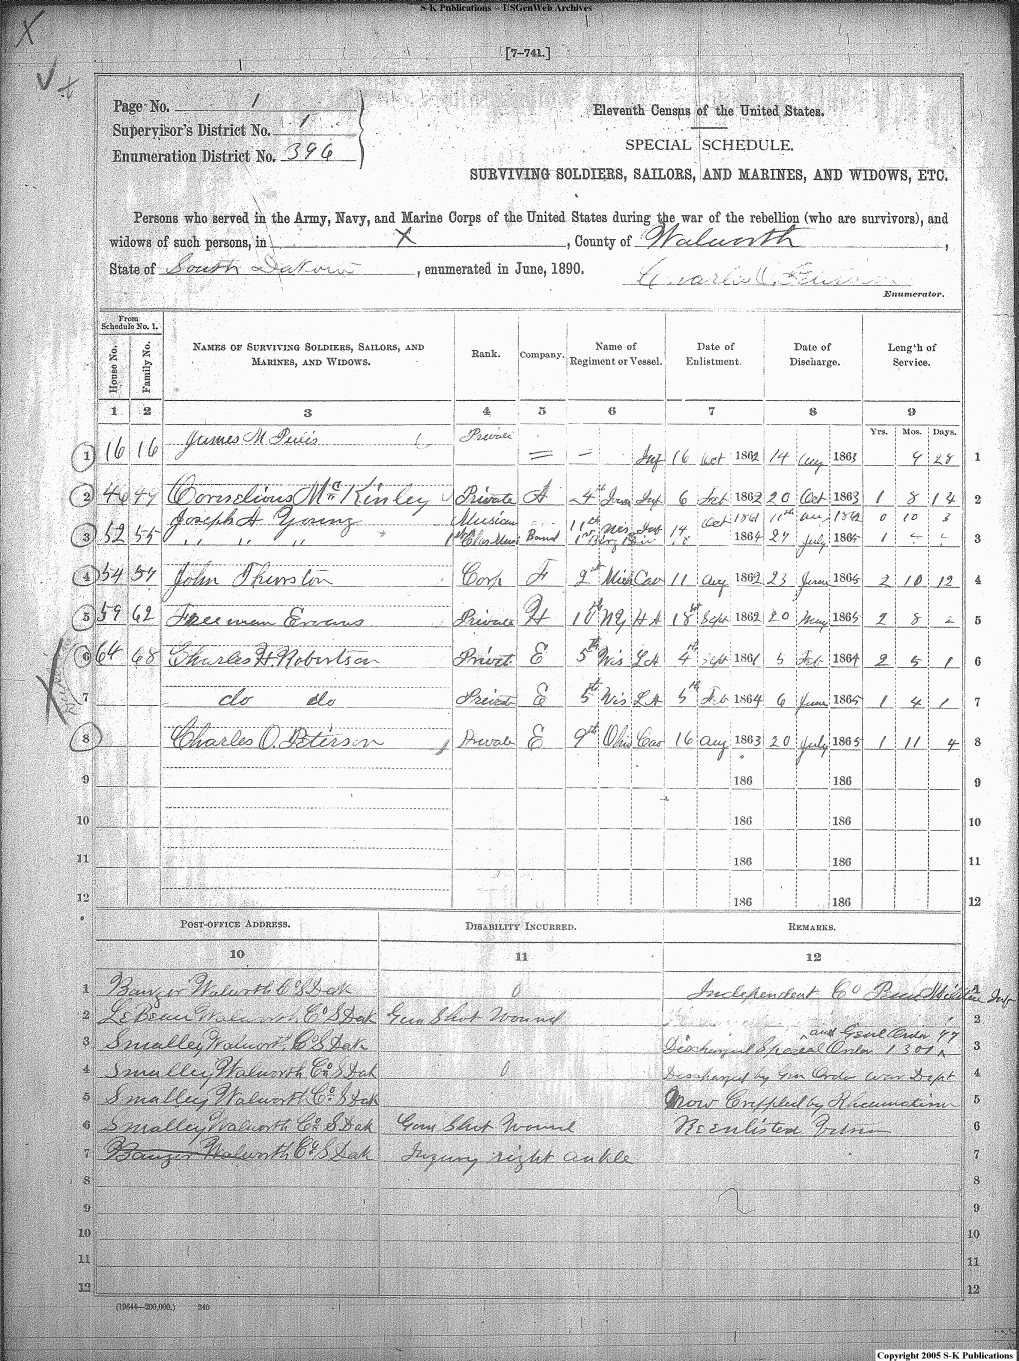 S-K Publications - USGenWeb Archives
[7-741.]
Page No. 1
Supervisor's District No. 1
Enumeration District No. 396
Eleventh Census of the United States.
SPECIAL SCHEDULE.
SURVIVING SOLDIERS, SAILORS, AND MARINES, AND WIDOWS, ETC.
Persons who served in the Army, Navy, and Marine Corps of the United States during the war of the rebellion (who are survivors), and
widows of such persons, in X, County of Walworth,
State of South Dakota, enumerated in June, 1890.
Enumerator.
From Schedule No. 1.
House No. Family No. NAMES OF SURVIVING SOLDIERS, SAILORS, AND MARINES, AND WIDOWS. Rank. Company. Name of Regiment or Vessel. Date of Enlistment. Date of Discharge. Length of Service.
1 2 3 4 5 6 7 8 9
Yrs. Mos. Days.
1 16 16 James M Private Inf 16 Oct 1862 14 Aug 1863 9 28 1
2 46 47 Cornelious McKinley Private A 4th Inf 6 Feb 1862 20 Oct 1863 1 8 14 2
Joseph A. Young Musician 11th Wis Inf 14 Oct 1861 11th Aug 1862 0 10 3
3 52 55 " " " 1st Clas Band 1864 27 July 1865 1 3
4 54 57 John Thurston Corp F 2nd Mich Cav 11 Aug 1862 23 June 1865 2 10 12 4
5 59 62 Freeman Ervans Private H 10th NY H A 18 Sept 1862 20 May 1865 2 8 5
6 64 68 Charles H. Robertson Privat E 5th Wis L A 4th Sept 1861 5 Feb 1864 2 5 1 6
7 do do Privat E 5th Wis L A 5th Feb 1864 6 June 1865 1 4 1 7
8 Charles O. Peterson Private E 9th Ohio Cav 16 Aug 1863 20 July 1865 1 11 4 8
9 186 186 9
10 186 186 10
11 186 186 11
12 186 186 12
POST-OFFICE ADDRESS. DISABILITY INCURRED. REMARKS.
10 11 12
1 Banger Walworth Co S Dak 0 Independent Co
2 LeBeau Walworth Co S Dak Gun Shot Wound 2
and Genl Order 77
3 Smalley Walworth Co S Dak Discharged Special Order 1301 3
4 Smalley Walworth Co S Dak 0 Discharged by Gen Order War Dept 4
5 Smalley Walworth Co S Dak Now Crippled by Rheumatism 5
6 Smalley Walworth Co S Dak Gun Shot Wound Reenlisted 6
7 Banger Walworth Co S Dak Injury right ankle 7
8 8
9 9
10 10
11 11
12 12
(19644-200,000.) 240
Copyright 2005 S-K Publications